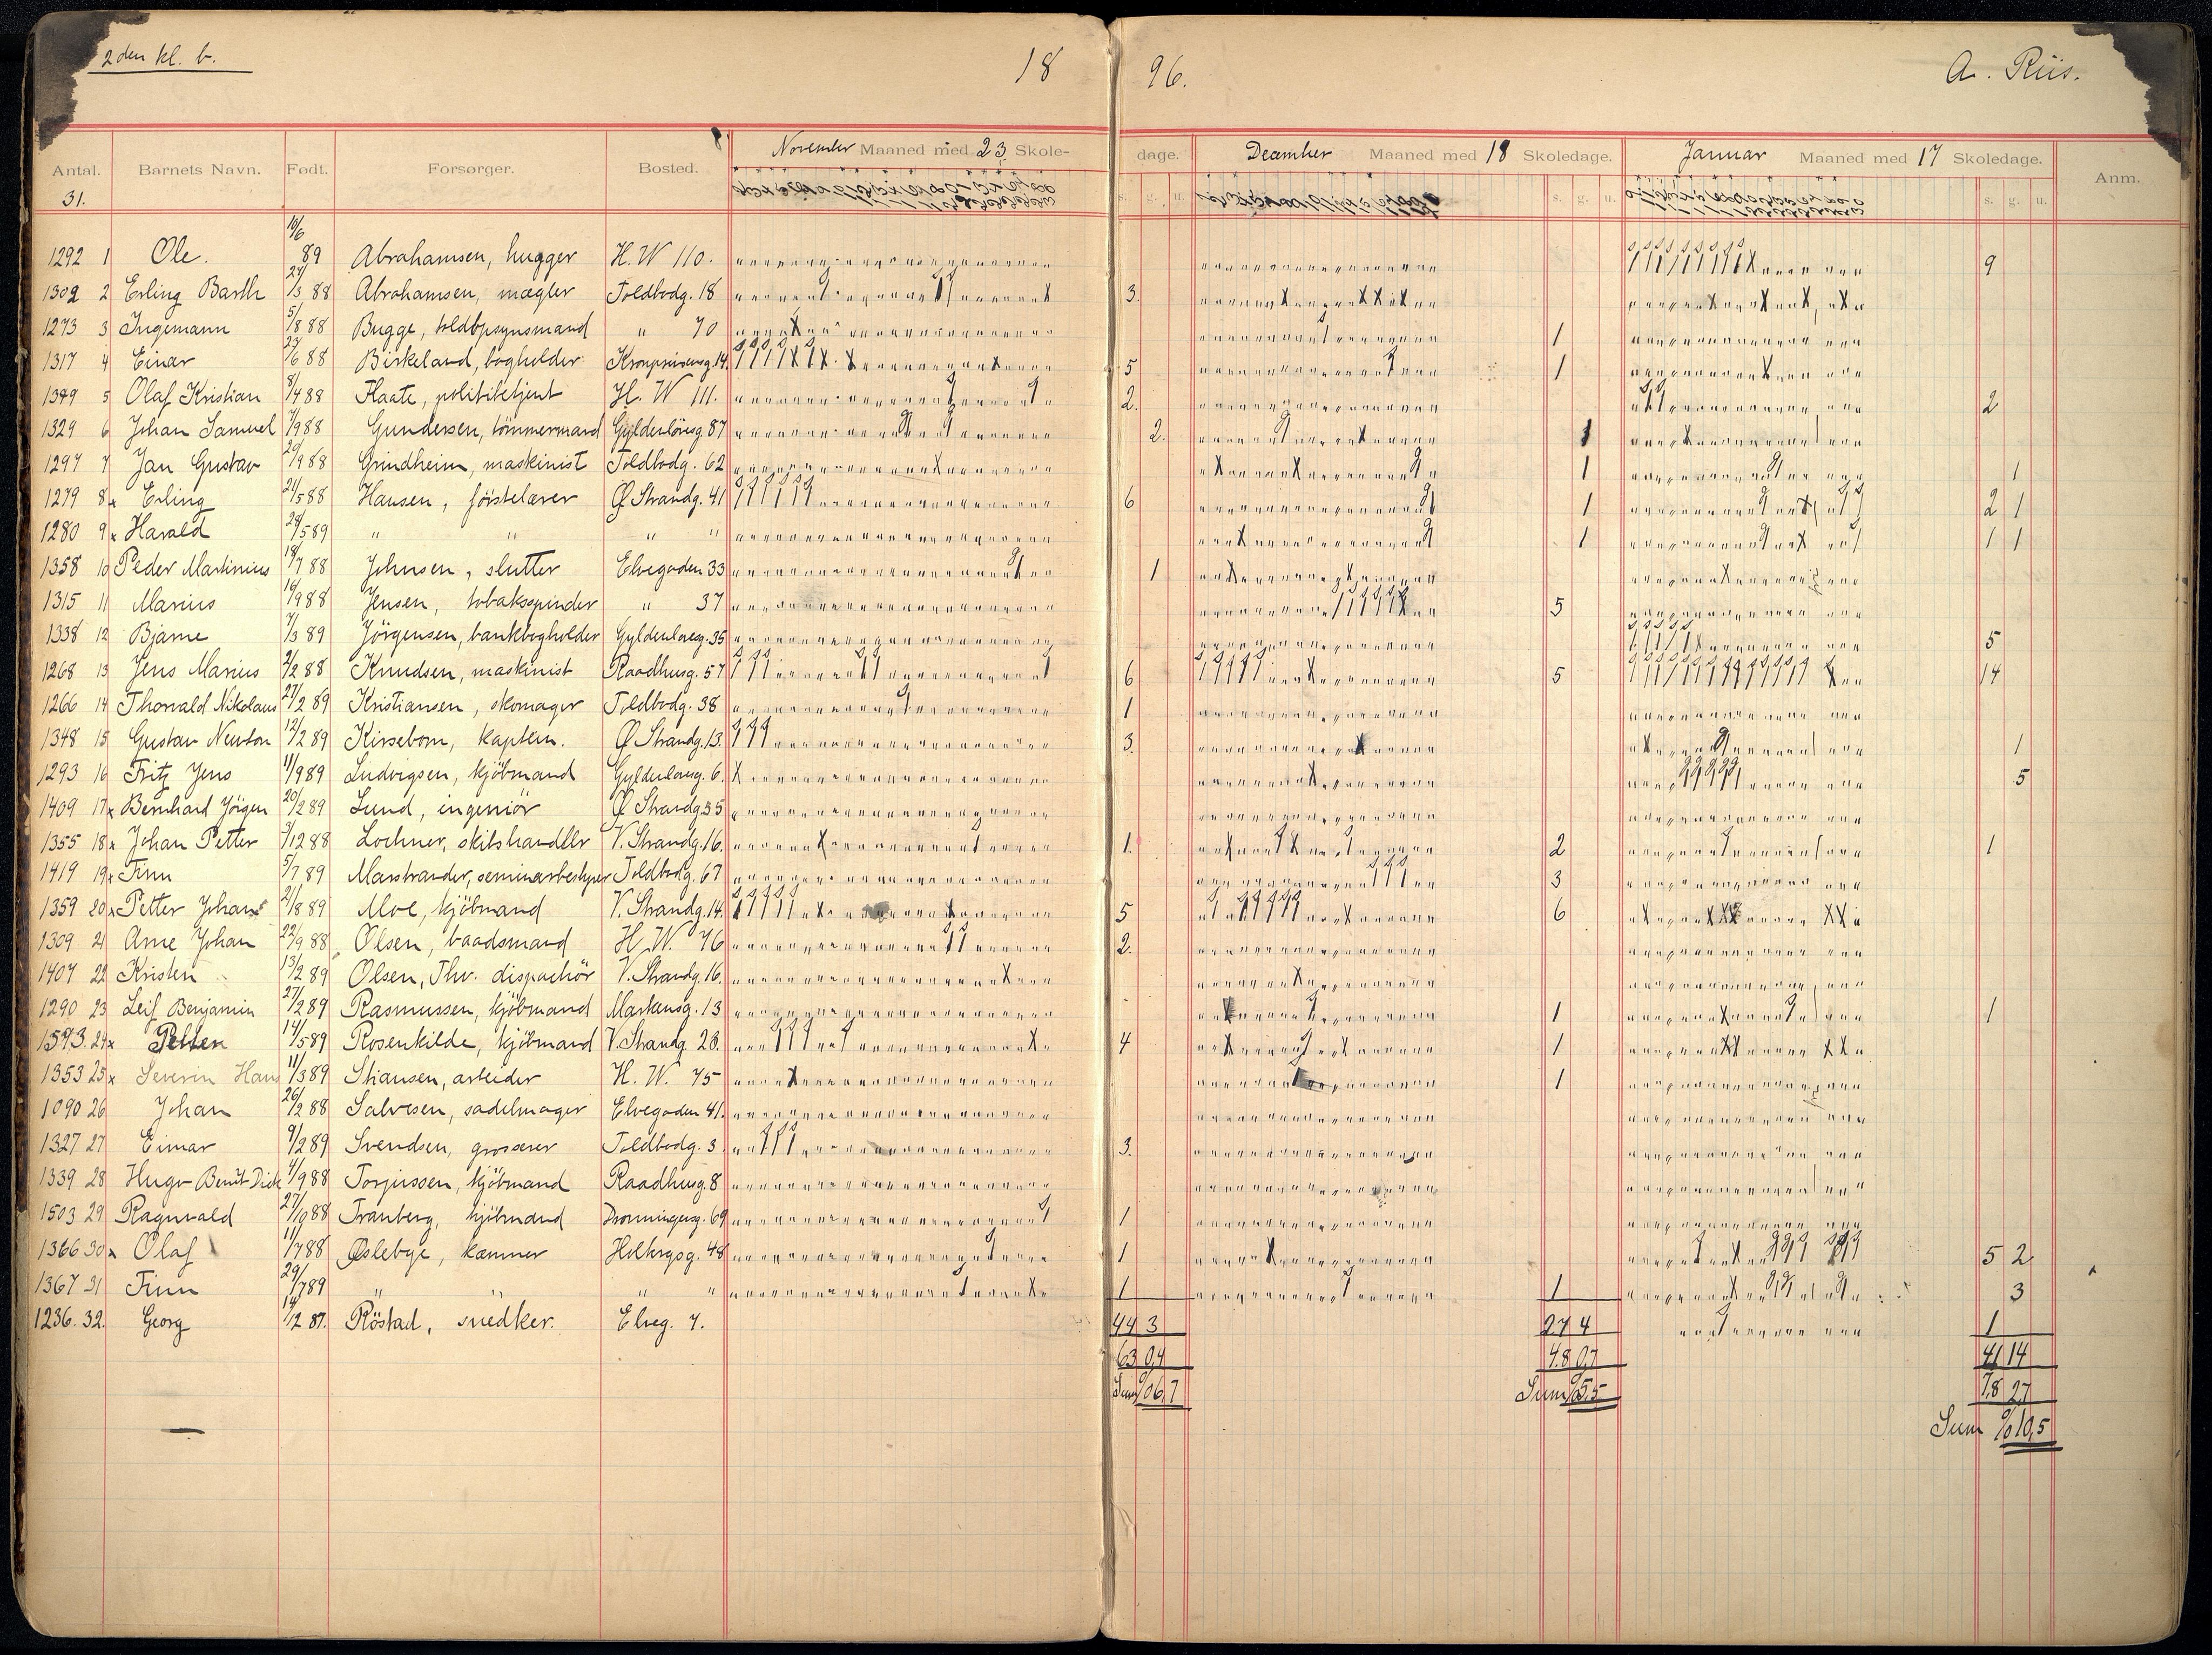 2den kl. b. 18 96. A. Riis.
Antal. Barnets Navn. Født. Forsørger. Bosted. November Maaned med 23 Skole- dage. December Maaned med 18 Skoledage. Januar Maaned med 17 Skoledage. Anm.
31. s. g. u. s. g. u. s. g. u.
1292 1 Ole. 10/6 89 Abrahamsen, hugger H.W 110. 9
1302 2 Erling Barth 24/3 88 Abrahamsen, mægler Toldbodg. 18 3.
1273 3 Ingemann 5/8 88 Bugge, toldopsynsmand " 70 1
1317 4 Einar 24/6 88 Birkeland, bogholder Kronprinsensg. 14. 5 1
1349 5 Olaf Kristian 8/4 88 Flaate, politibetjent H. W 111. 2. 2
1329 6 Johan Samuel 7/9 88 Gundersen, tömmermand Gyldenlövesg 87 2. 1
1297 7 Jan Gustav 20/9 88 Grindheim, maskinist Toldbodg. 62 1 1
1279 8 x Erling 21/5 88 Hansen, förstelærer Ø Strandg. 41 6 1 2 1
1280 9 x Harald 28/5 89 " " " " 1 1 1
1358 10 Peder Martinius 18/7 88 Johnsen, slutter Elvegaden 33 1
1315 11 Marius 16/9 88 Jensen, tobaksspinder " 37 5
1338 12 Bjarne 7/3 89 Jörgensen, bankbogholder Gyldenlovesg. 35 5
1268 13 Jens Marius 9/2 88 Knudsen, maskinist Raadhusg. 57 6 5 14
1266 14 Thorvald Nikolaus 27/2 89 Kristiansen, skomager Toldbodg. 38 1
1348 15 Gustav Newton 12/2 89 Kirsebom, kaptein. Ø Strandg. 13. 3. 1
1293 16 Fritz Jens 11/9 89 Ludvigsen, kjöbmand Gyldenlovesg. 6. 5
1409 17 x Bernhard Jörgen 20/2 89 Lund, ingeniör Ø Strandg 35
1355 18 x Johan Petter 3/12 88 Lochner, skibshandler V. Strandg. 16. 1. 2 1
1419 19 x Finn 5/7 89 Marstrander, seminarbestyrer Toldbodg. 67 3
1359 20 x Petter Johan 21/8 89 Moe, kjöbmand V. Strandg. 14. 5 6
1309 21 Arne Johan 22/9 88 Olsen, baadsmand H. W. 76 2.
1407 22 Kristen 13/2 89 Olsen, Thv. dispachör V. Strandg. 16.
1290 23 Leif Benjamin 27/2 89 Rasmussen, kjöbmand Markensg. 13 1 1
1543. 24 x Petter 14/5 89 Rosenkilde, kjöbmand V. Strandg. 28. 4 1
1353 25 x Severin Hans 11/3 89 Stiansen, arbeider H. W. 75 1
1090 26 Johan 26/2 88 Salvesen, sadelmager Elvegaden 41.
1327 27 Einar 9/2 89 Svendsen, grosserer Toldbodg. 3. 3.
1339 28 Hugo Bernt Dick 4/9 88 Torjussen, kjöbmand Raadhusg. 8
1503 29 Ragnvald 27/9 88 Tranberg, kjöbmand Dronningensg. 69 1
1366 30 x Olaf 11/7 88 Øslebye, kæmner Holbergsg. 48 1 5 2
1367 31 Finn 29/7 89 " " " " 1 1 3
1236. 32. Georg 14/12 87. Röstad, snedker. Elveg. 7. 1
44 3 27 4 41 14
6,3 0,4 4,8 0,7 7,8 2,7
Sum % 6,7 Sum % 5,5
Sum % 10,5